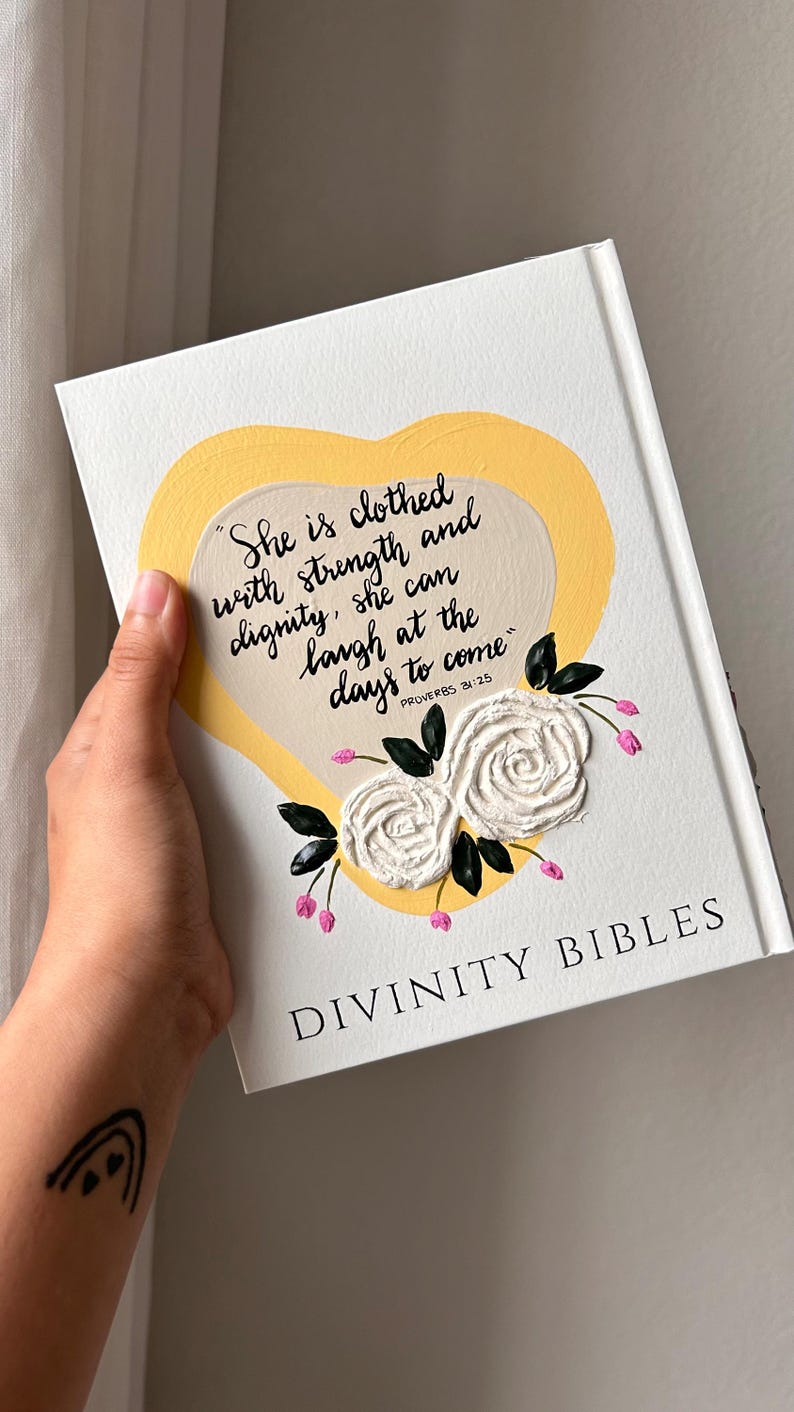 "She is clothed
with strength and
dignity, she can
laugh at the
days to come"
PROVERBS 31:25
DIVINITY BIBLES